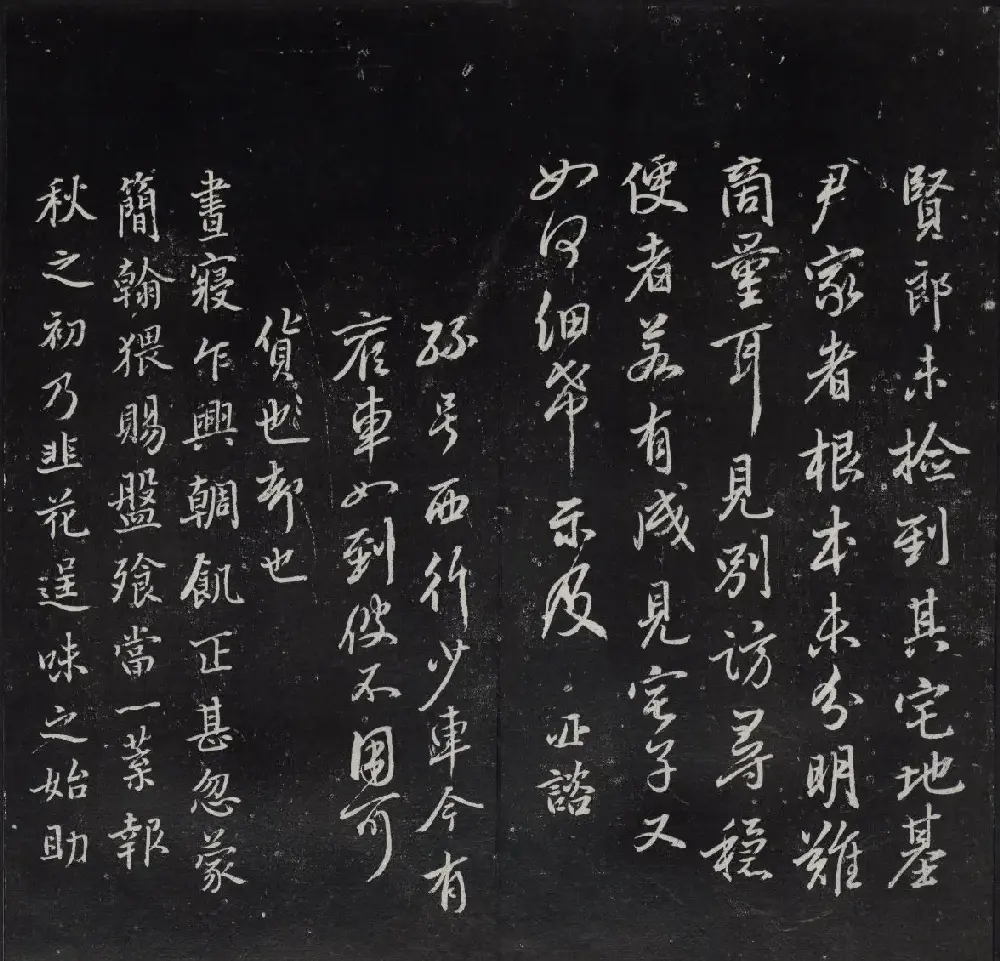 賢郎未檢到其宅地基
尹家者根本未分明難
商量耳見別訪尋穩
便者若有成見宅子又
如何細希示及 凝諮
孫号西行少車今有
雇車如到彼不用可
貨也却也
晝寢乍興輖飢正甚忽蒙
簡翰猥賜盤飧當一葉報
秋之初乃韭花逞味之始助